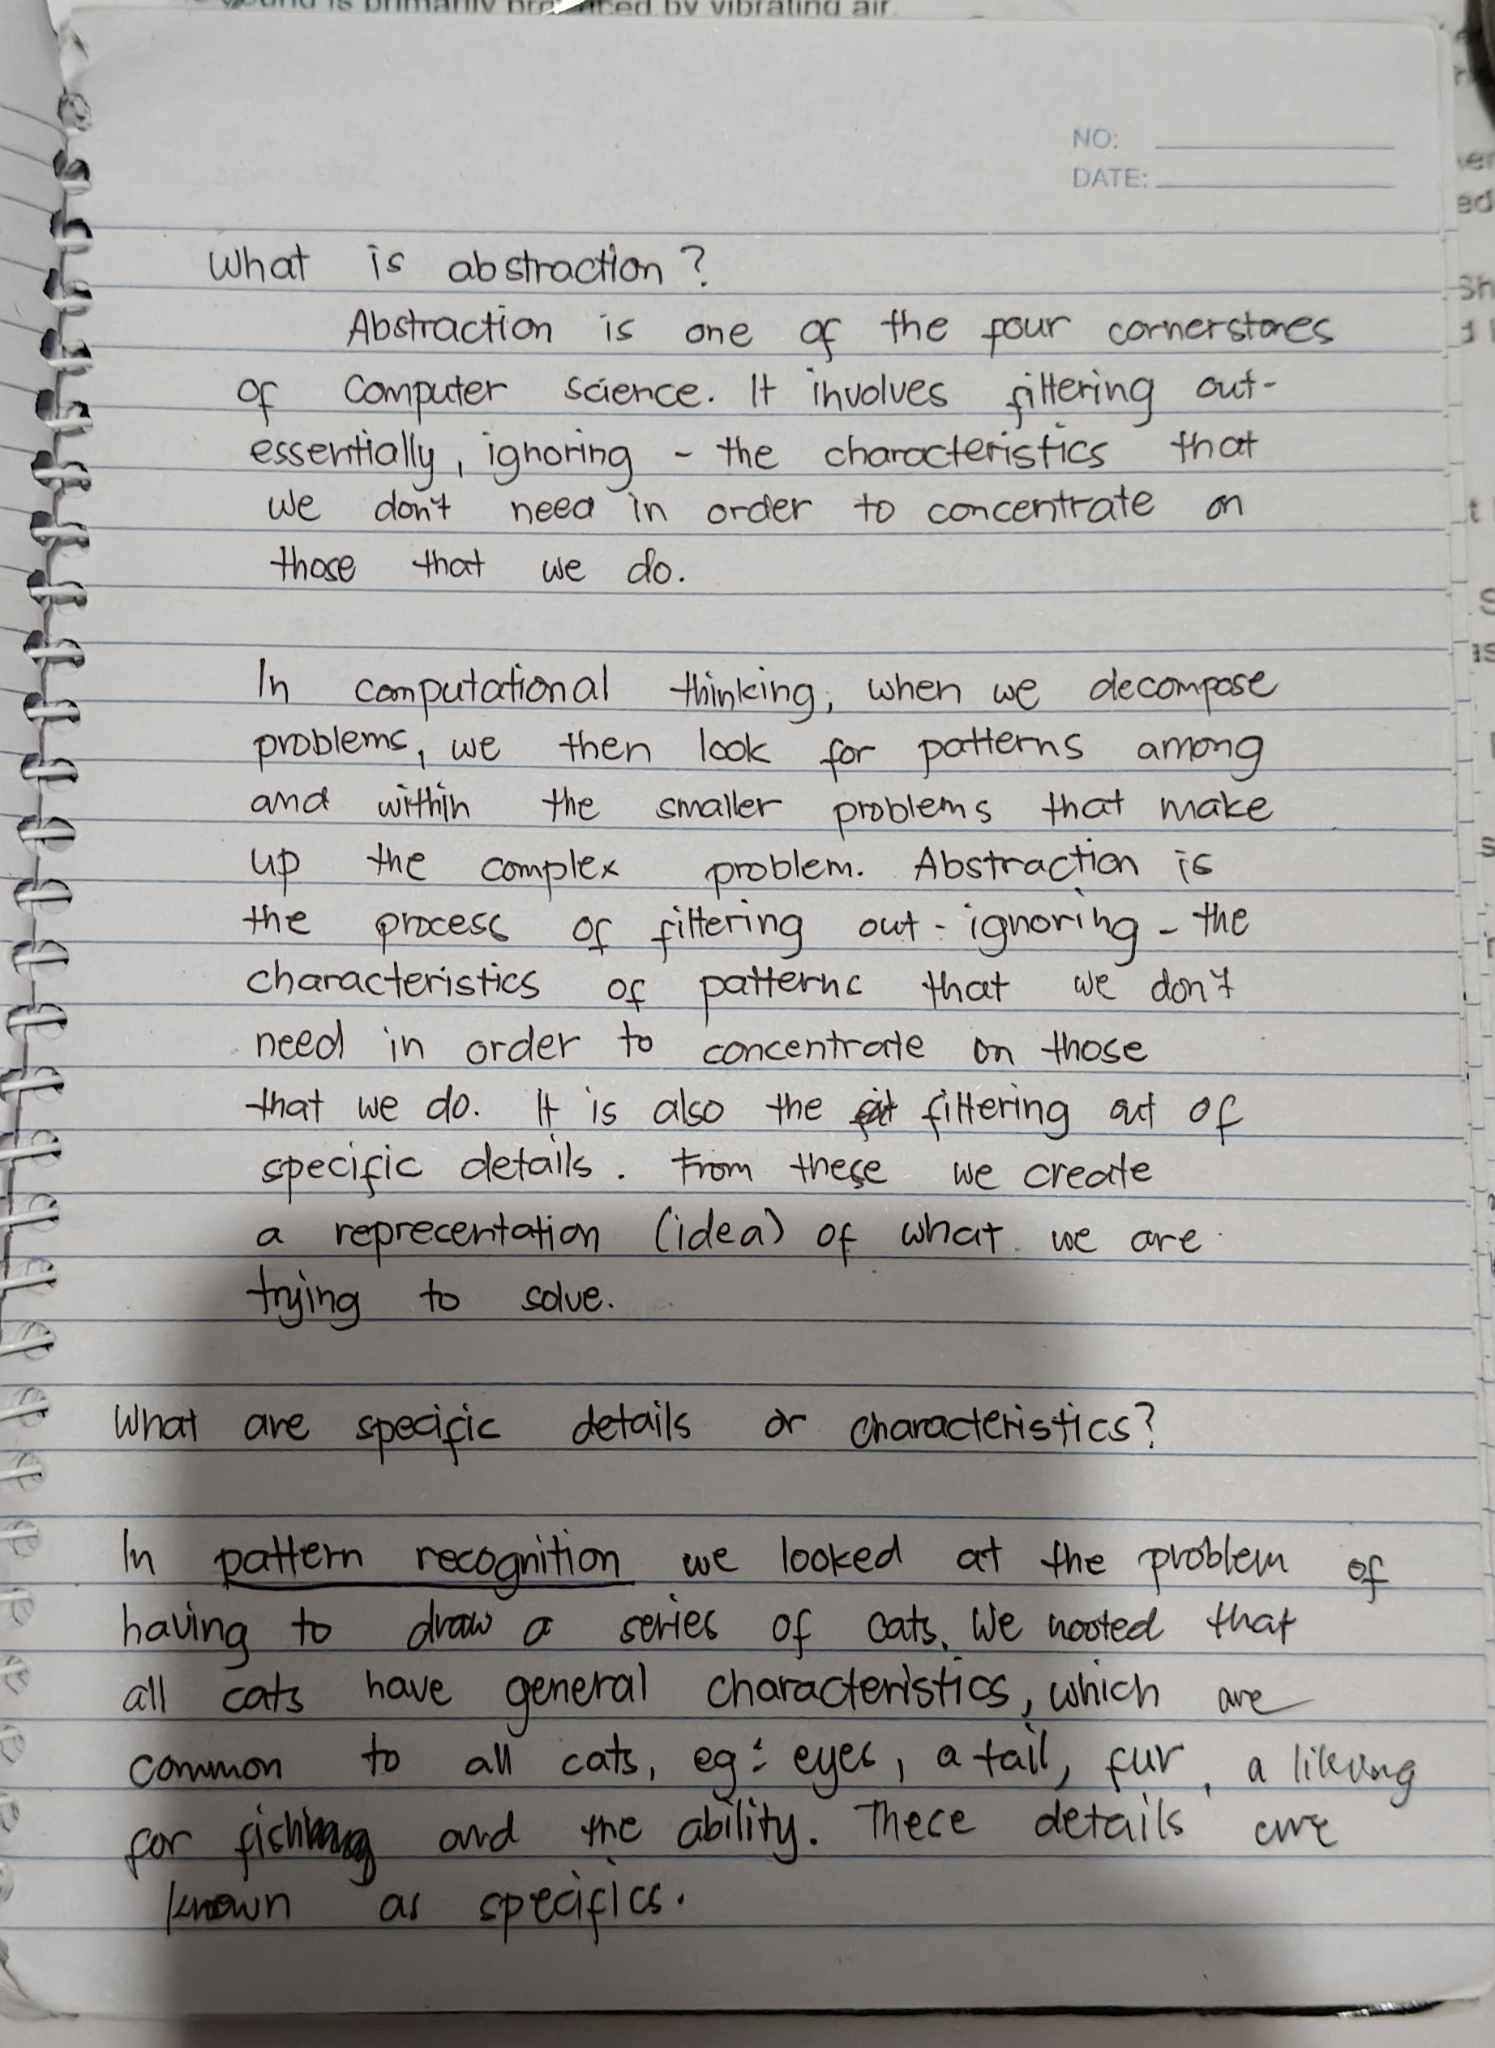 sound is primarily produced by vibrating air
NO:
DATE:
What is abstraction?
Abstraction is one of the four cornerstones
of Computer science. It involves filtering out-
essentially, ignoring - the characteristics that
we don't need in order to concentrate on
those that we do.
In computational thinking, when we decompose
problems, we then look for patterns among
and within the smaller problems that make
up the complex problem. Abstraction is
the process of filtering out - ignoring - the
characteristics of patterns that we don't
need in order to concentrate on those
that we do. It is also the filtering out of
specific details. From these we create
a reprecentation (idea) of what we are
trying to solve.
What are specific details or characteristics?
In pattern recognition we looked at the problem of
having to draw a series of cats. We nooted that
all cats have general characteristics, which are
common to all cats, eg: eyes, a tail, fur, a liking
for fishing and the ability. These details are
known as specifics.